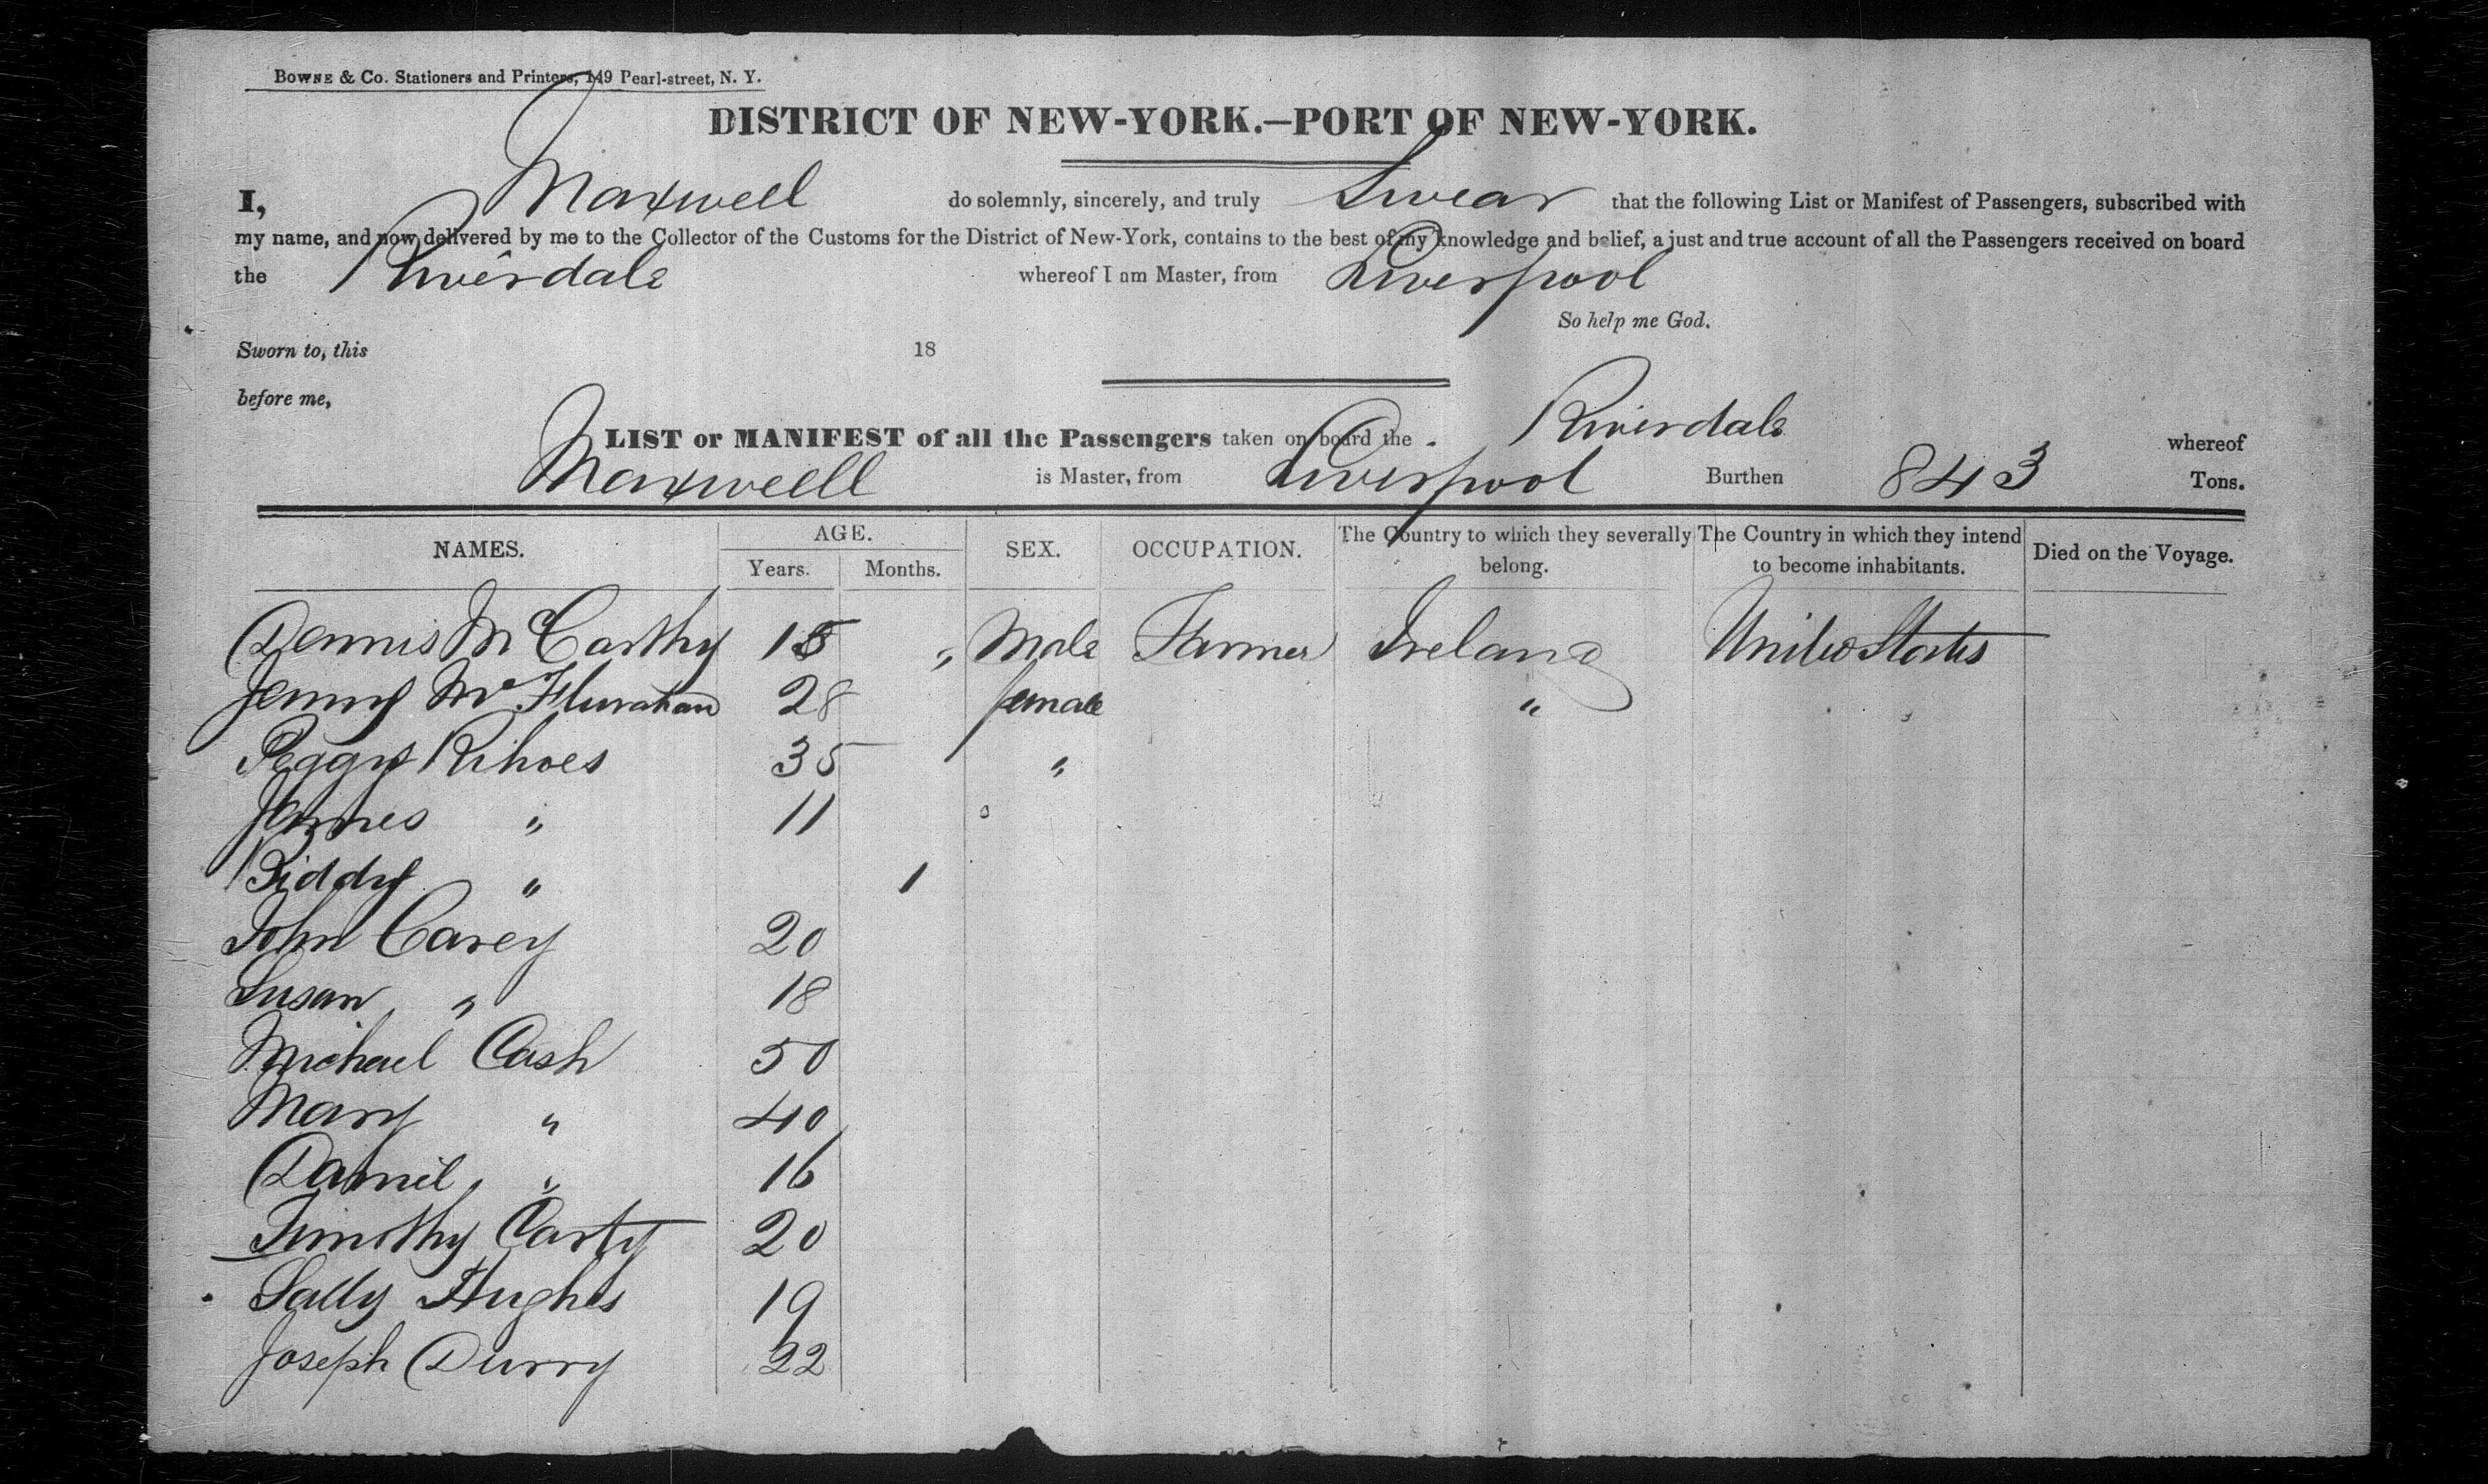 BOWNE & Co. Stationers and Printers, 149 Pearl-street, N. Y.
DISTRICT OF NEW-YORK.—PORT OF NEW-YORK.
I, Maxwell do solemnly, sincerely, and truly Swear that the following List or Manifest of Passengers, subscribed with
my name, and now delivered by me to the Collector of the Customs for the District of New-York, contains to the best of my knowledge and belief, a just and true account of all the Passengers received on board
the Riverdale whereof I am Master, from Liverpool
So help me God.
Sworn to, this 18
before me,
LIST or MANIFEST of all the Passengers taken on board the Riverdale whereof
Maxwell is Master, from Liverpool Burthen 843 Tons.
NAMES. AGE. Years. Months. SEX. OCCUPATION. The Country to which they severally belong. The Country in which they intend to become inhabitants. Died on the Voyage.
Dennis McCarthy " Male Farmer Ireland United States
Jenny 28 female "
Peggy 35 "
James " 11
Biddy " 1
John Carey 20
Susan " 18
Michael Cash 50
Mary " 40
Daniel " 16
Timothy Carty 20
Sally Hughes 19
Joseph Durry 22